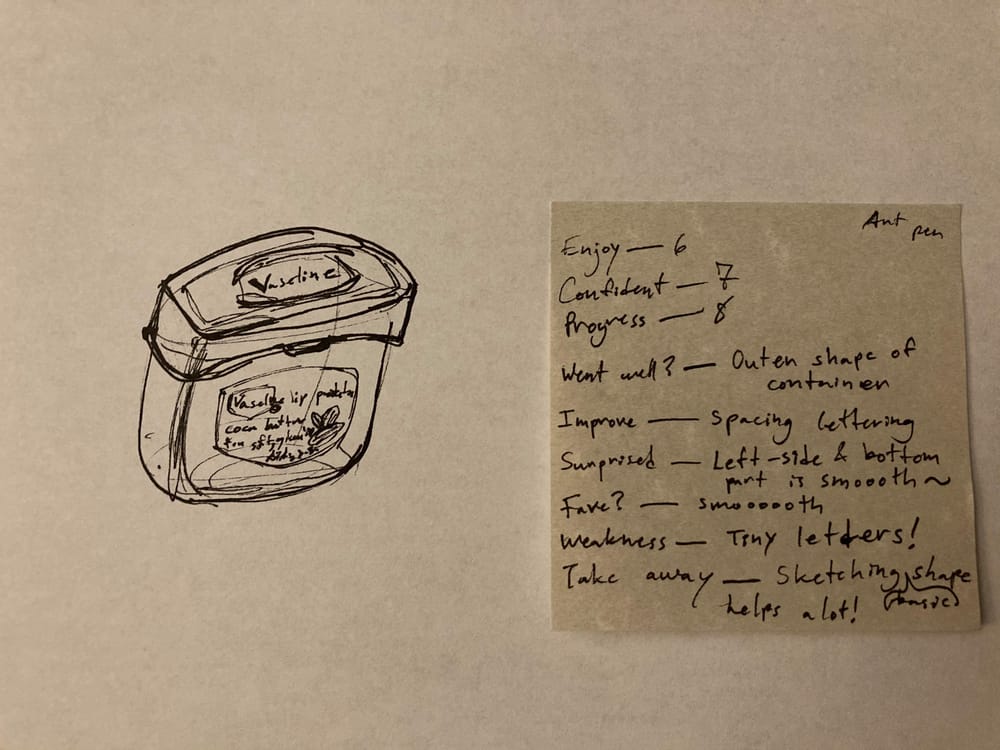 Vaseline
Vaseline lip
cocoa butter
for
Art
pen
Enjoy — 6
Confident — 7
Progress — 8
Went well? — Outer shape of
container
Improve — Spacing lettering
Surprised — Left-side & bottom
part is smoooth~
Fave? — smoooooth
Weakness — Tiny letters!
Take away — Sketching (basic) shape
helps a lot!